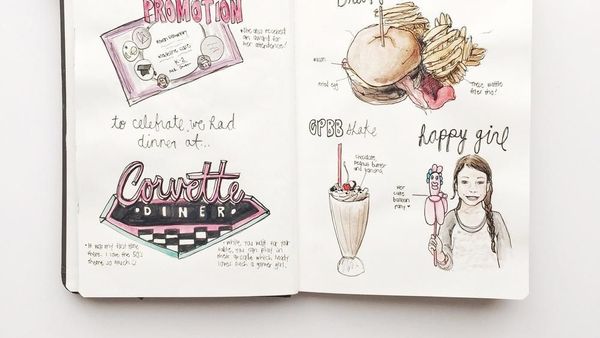 PROMOTION
We also received
an award for
her attendance!
K-2
to celebrate, we had
dinner at...
Corvette
DINER
• It was my first time
there. I love the 50's
theme so much
• While you wait for your
table, you can play in
their arcade which
loves such a gamer girl.
bacon
fried egg
these waffle
fries tho!
GPBB shake
chocolate,
peanut butter
and banana
happy girl
Her
cute
balloon
pony